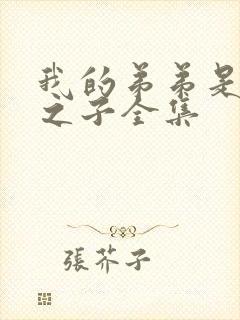 我的弟弟是
之子全集
張芥子